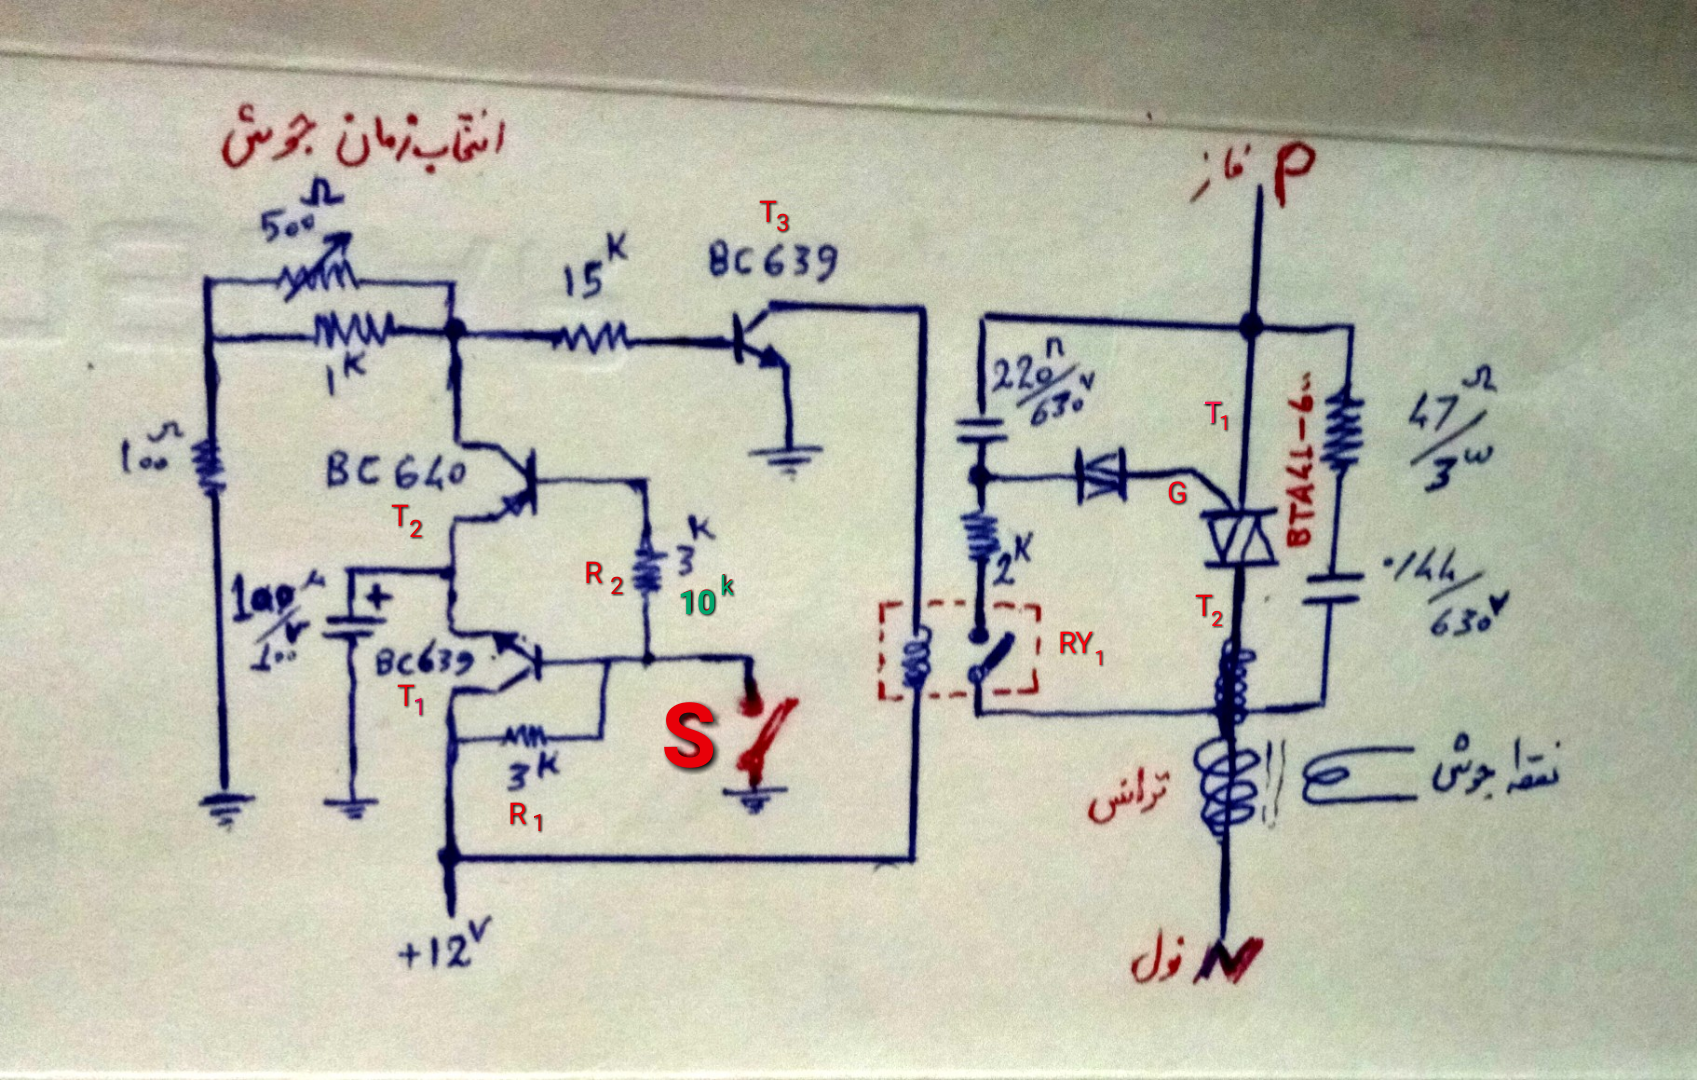 انتخاب زمان جوش
500Ω
1K
15K
T3
BC639
100Ω
BC640
T2
R2
3K
10k
+
100
BC639
T1
3K
R1
S
+12V
P فاز
220n/630V
T1
BTA41-600
47Ω/3W
G
2K
T2
630V
RY1
ترانس
نقطه جوش
نول N